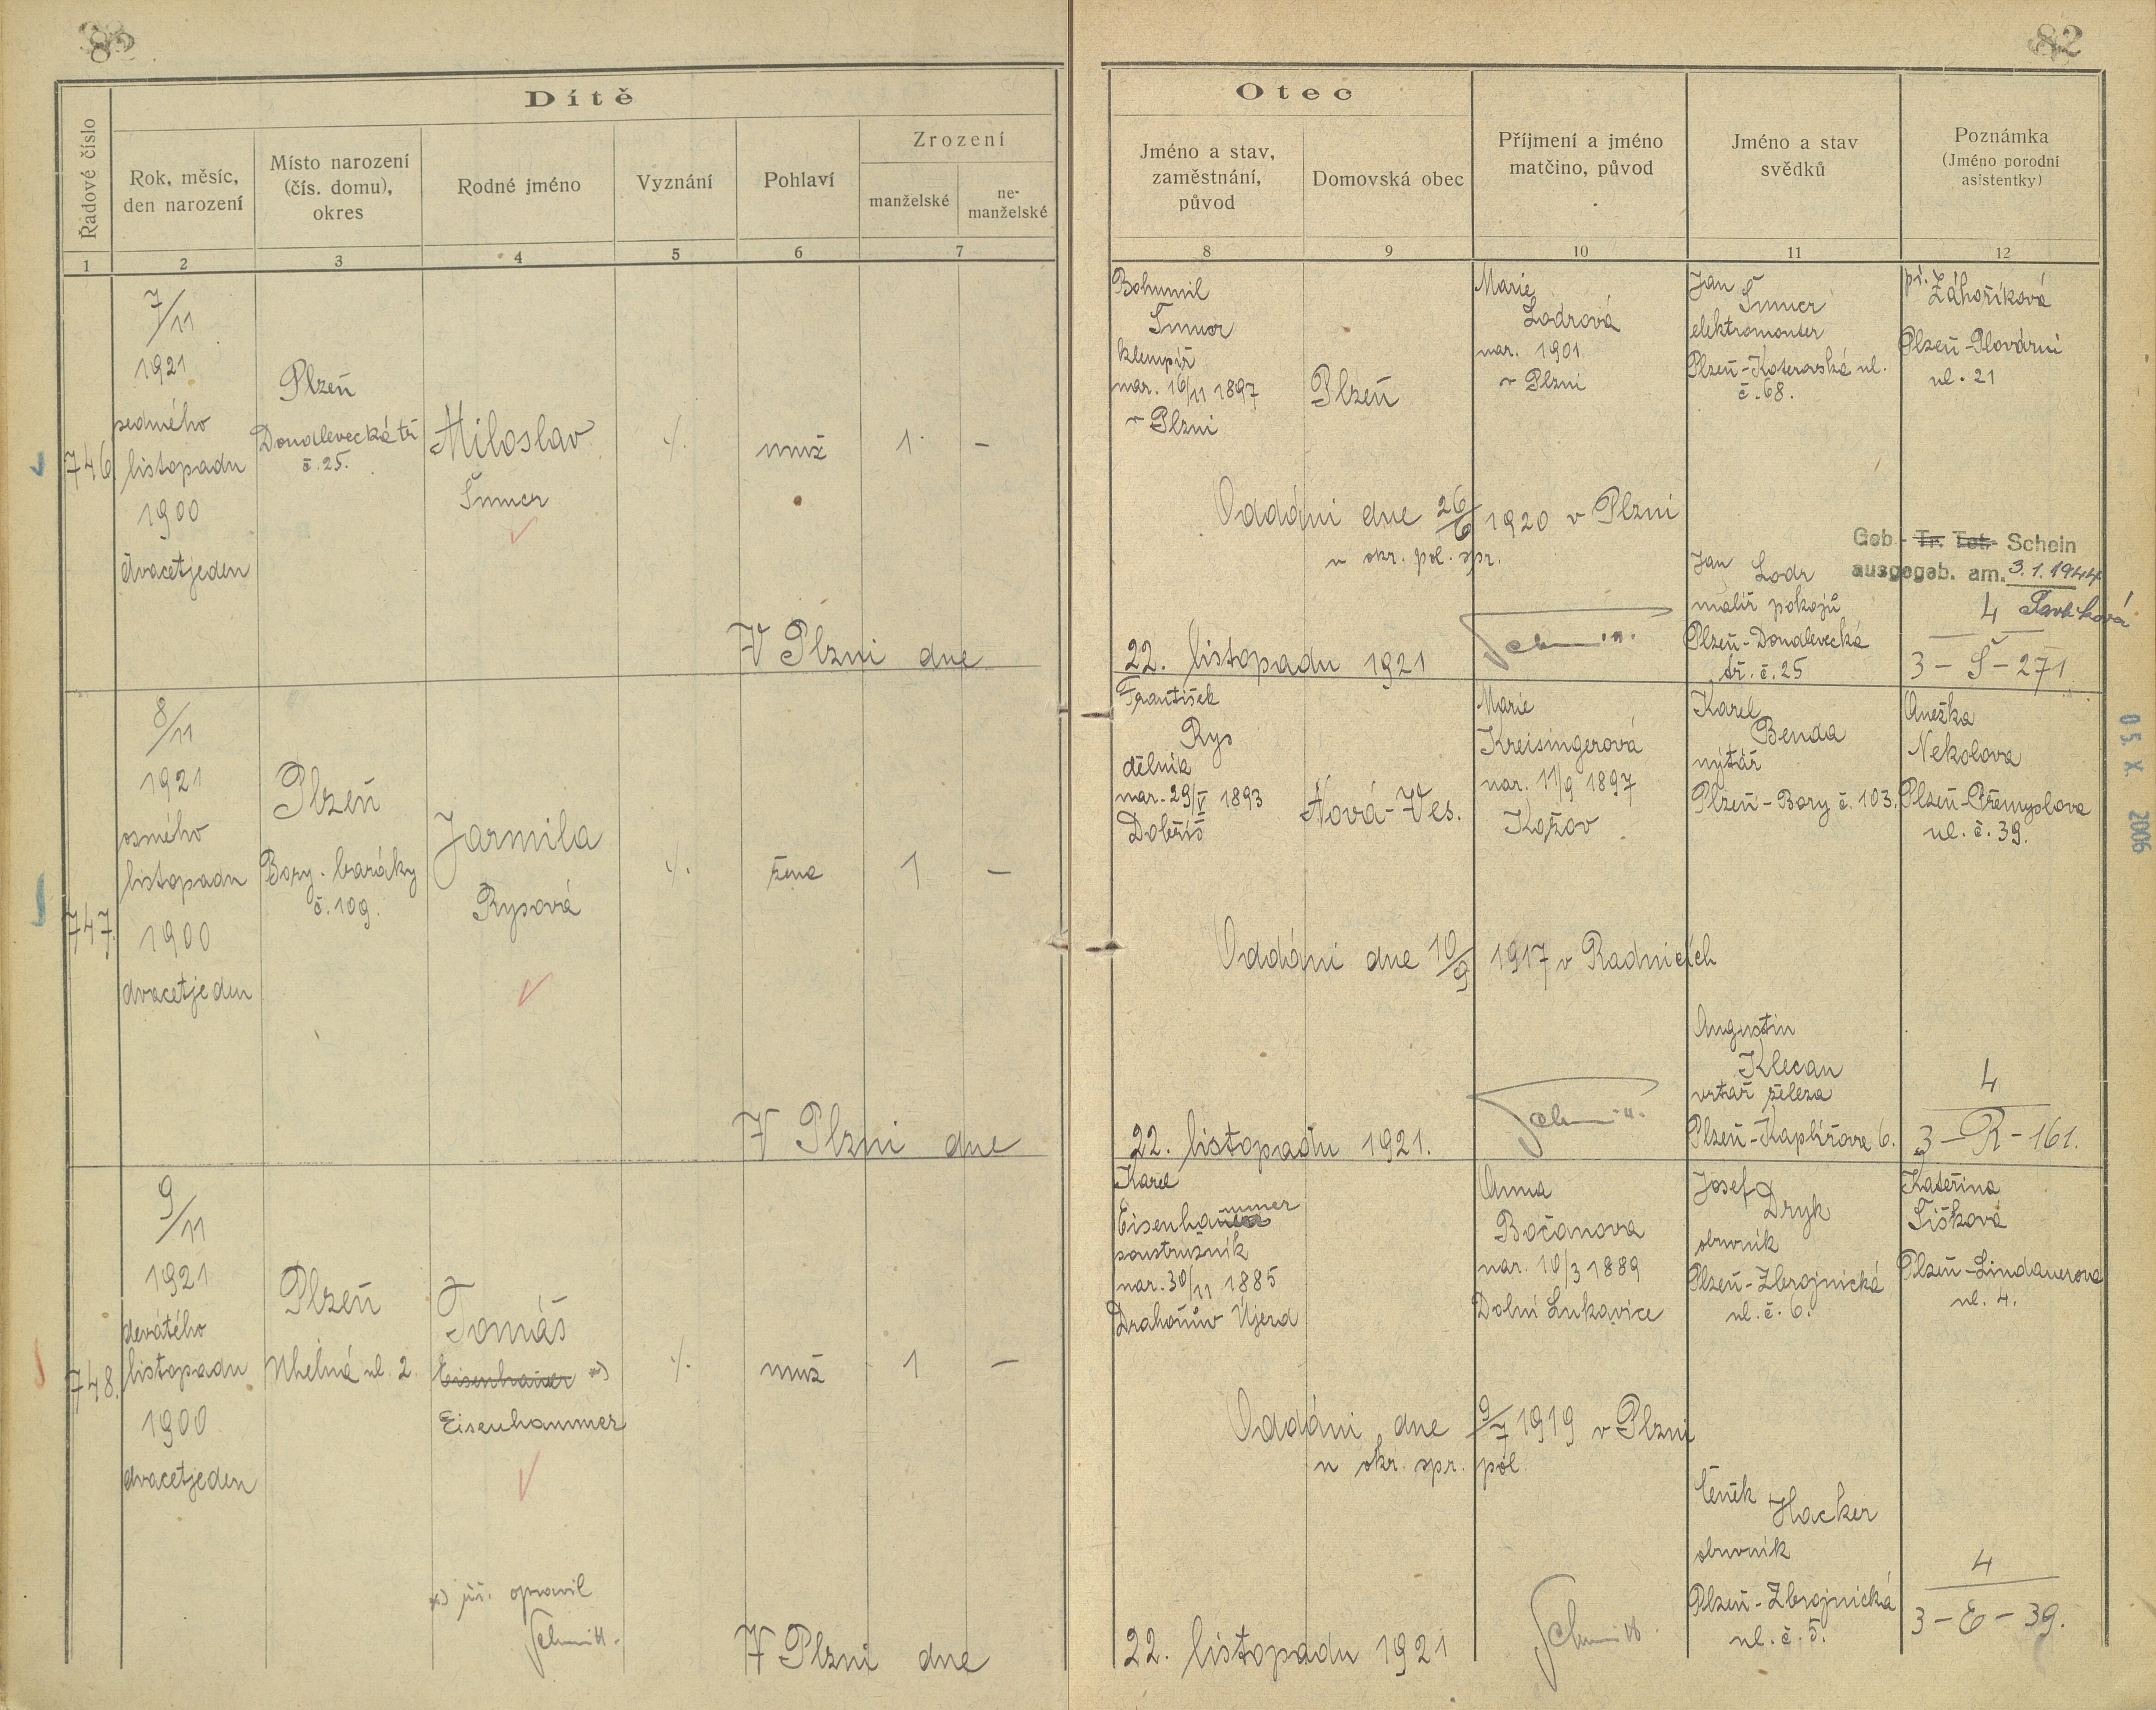 82
Dítě
Řadové číslo
Rok, měsíc,
den narození
Místo narození
(čís. domu),
okres
Rodné jméno
Vyznání
Pohlaví
Zrození
manželské
ne-
manželské
1
2
3
4
5
6
7
Otec
Jméno a stav,
zaměstnání,
původ
Domovská obec
Příjmení a jméno
matčino, původ
Jméno a stav
svědků
Poznámka
(Jméno porodní
asistentky)
8
9
10
11
12
746.
7/11
1921
sedmého
listopadu
1900
dvacetjeden
Plzeň
Doudlevecká tř
č. 25.
Miloslav
Šmucr
./.
muž
1
–
V Plzni dne
Bohumil
Šmucr
klempíř
nar. 16/11 1897
v Plzni
Plzeň
Marie
Lodrová
nar. 1901
v Plzni
Oddáni dne 26/6 1920 v Plzni
u okr. pol. spr.
22. listopadu 1921
Jan
Šmucr
elektromonter
Plzeň-Koterovská ul.
č. 68.
Jan Lodr
malíř pokojů
Plzeň-Doudlevecká
tř. č. 25
Záhoříková
Plzeň-Plovární
ul. 21
Geb.- Tr. Tot. Schein
ausgegeb. am. 3.1.1944
4
3 – Š – 271
747.
8/11
1921
osmého
listopadu
1900
dvacetjeden
Plzeň
Bory - baráky
č. 109.
Jarmila
Rysová
./.
žena
1
–
V Plzni dne
František
Rys
dělník
nar. 29/V 1893
Dobříš
Nová-Ves.
Marie
Kreisingerová
nar. 11/9 1897
Kožov
Oddáni dne 10/9 1917 v Radnicích
22. listopadu 1921.
Karel
Benda
nýtář
Plzeň-Bory č. 103.
Augustin
Klecan
vrtař železa
Plzeň-Kaplířova 6.
Anežka
Nekolova
Plzeň-Přemyslova
ul. č. 39.
4
3 – R – 161.
05. X. 2006
748.
9/11
1921
devátého
listopadu
1900
dvacetjeden
Plzeň
Uhelná ul. 2.
Tomáš
Eisenhauer *)
Eisenhammer
./.
muž
1
–
*) opravil
Schmitt
V Plzni dne
Karel
Eisenhammer
soustružník
nar. 30/11 1885
Drahoňův Újezd
Anna
Bočanova
nar. 10/3 1889
Dolní Lukavice
Oddáni dne 9/7 1919 v Plzni
u okr. spr. pol.
22. listopadu 1921
Schmitt
Josef
Dryk
obuvník
Plzeň-Zbrojnická
ul. č. 6.
Čeněk
Hacker
obuvník
Plzeň-Zbrojnická
ul. č. 5.
Kateřina
Šišková
Plzeň-Lindauerova
ul. 4.
4
3 – E – 39.